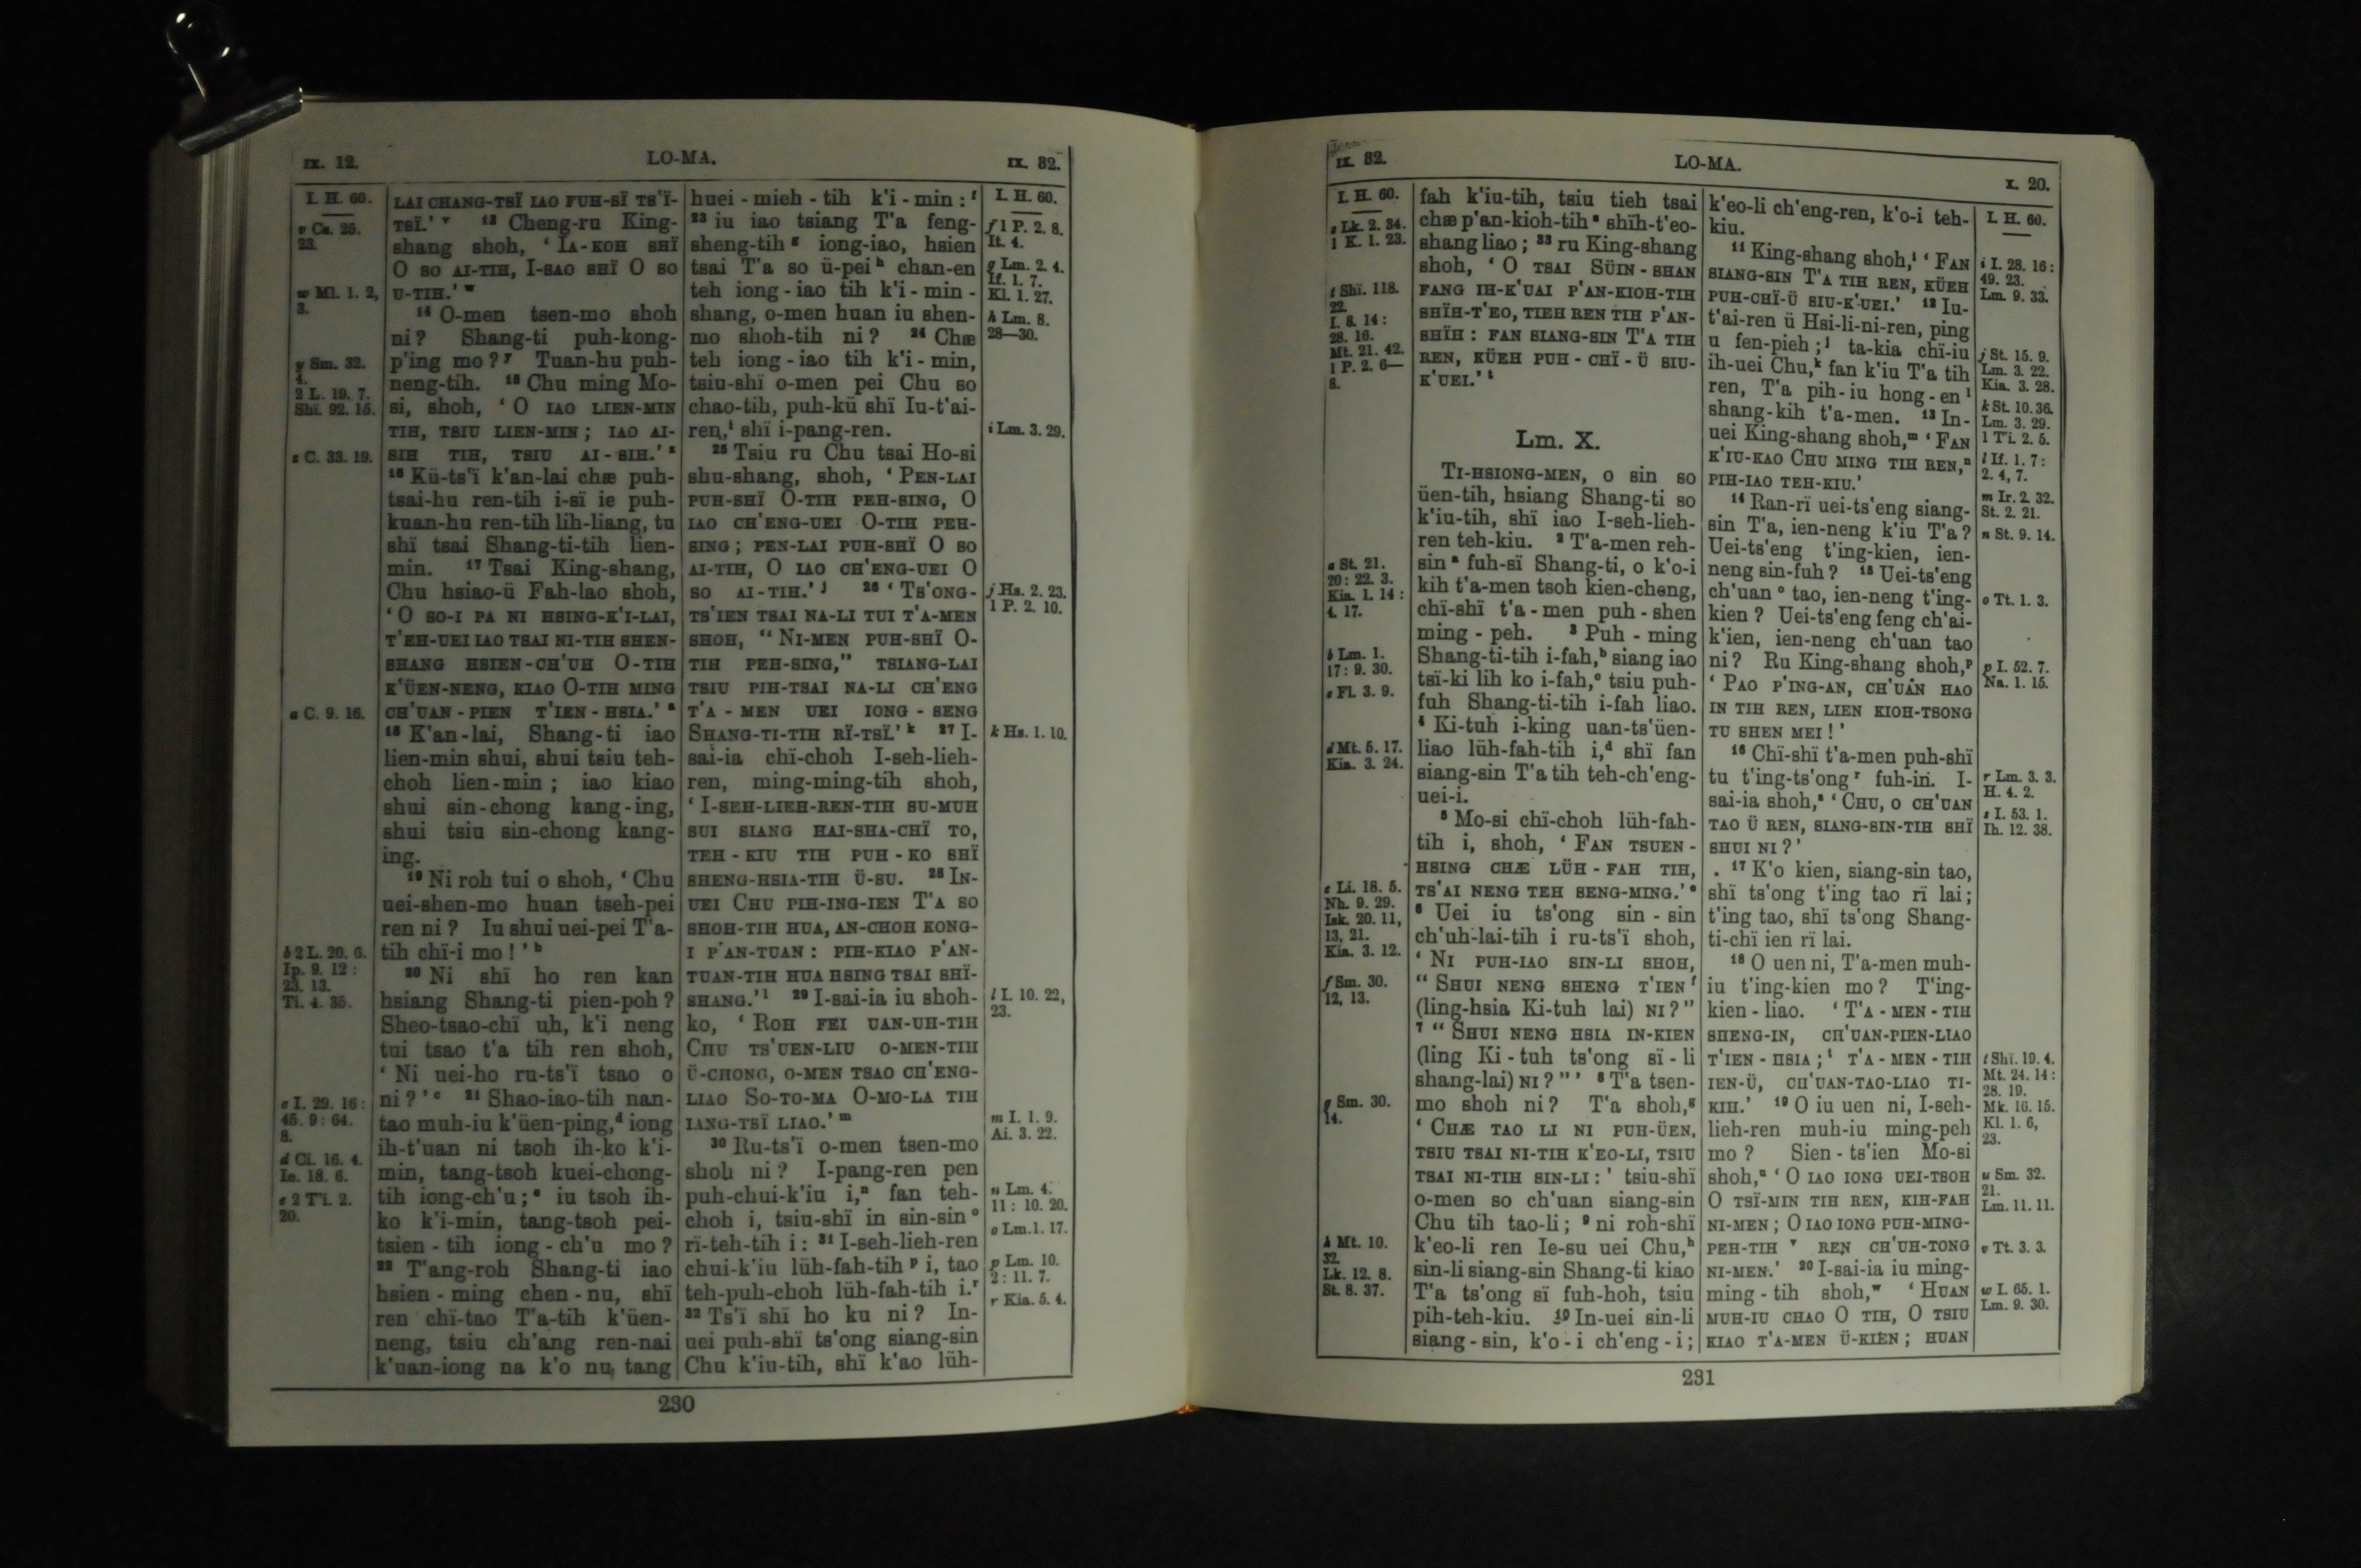 IX. 12.
LO-MA.
IX. 32.
I. H. 60.
v Cs. 25.
23.
w Ml. 1. 2,
3.
y Sm. 32.
4.
2 L. 19. 7.
Shï. 92. 15.
z C. 33. 19.
a C. 9. 16.
b 2 L. 20. 6.
Ip. 9. 12 :
23. 13.
Ti. 4. 35.
c I. 29. 16 :
45. 9 : 64.
8.
d Ci. 16. 4.
Ie. 18. 6.
e 2 Ti. 2.
20.
LAI CHANG-TSÏ IAO FUH-SÏ TS'Ï-
TSÏ.' v 13 Cheng-ru King-
shang shoh, ' IA-KOH SHÏ
O SO AI-TIH, I-SAO SHÏ O SO
U-TIH.' w
14 O-men tsen-mo shoh
ni? Shang-ti puh-kong-
p'ing mo? y Tuan-hu puh-
neng-tih. 15 Chu ming Mo-
si, shoh, ' O IAO LIEN-MIN
TIH, TSIU LIEN-MIN; IAO AI-
SIH TIH, TSIU AI-SIH.' z
16 Kü-ts'ï k'an-lai chæ puh-
tsai-hu ren-tih i-sï ie puh-
kuan-hu ren-tih lih-liang, tu
shï tsai Shang-ti-tih lien-
min. 17 Tsai King-shang,
Chu hsiao-ü Fah-lao shoh,
' O SO-I PA NI HSING-K'I-LAI,
T'EH-UEI IAO TSAI NI-TIH SHEN-
SHANG HSIEN-CH'UH O-TIH
K'ÜEN-NENG, KIAO O-TIH MING
CH'UAN-PIEN T'IEN-HSIA.' a
18 K'an-lai, Shang-ti iao
lien-min shui, shui tsiu teh-
choh lien-min; iao kiao
shui sin-chong kang-ing,
shui tsiu sin-chong kang-
ing.
19 Ni roh tui o shoh, ' Chu
uei-shen-mo huan tseh-pei
ren ni? Iu shui uei-pei T'a-
tih chï-i mo!' b
20 Ni shï ho ren kan
hsiang Shang-ti pien-poh?
Sheo-tsao-chï uh, k'i neng
tui tsao t'a tih ren shoh,
' Ni uei-ho ru-ts'ï tsao o
ni?' c 21 Shao-iao-tih nan-
tao muh-iu k'üen-ping, d iong
ih-t'uan ni tsoh ih-ko k'i-
min, tang-tsoh kuei-chong-
tih iong-ch'u; e iu tsoh ih-
ko k'i-min, tang-tsoh pei-
tsien-tih iong-ch'u mo?
22 T'ang-roh Shang-ti iao
hsien-ming chen-nu, shï
ren chï-tao T'a-tih k'üen-
neng, tsiu ch'ang ren-nai
k'uan-iong na k'o nu, tang
huei-mieh-tih k'i-min: f
23 iu iao tsiang T'a feng-
sheng-tih g iong-iao, hsien
tsai T'a so ü-pei h chan-en
teh iong-iao tih k'i-min-
shang, o-men huan iu shen-
mo shoh-tih ni? 24 Chæ
teh iong-iao tih k'i-min,
tsiu-shï o-men pei Chu so
chao-tih, puh-kü shï Iu-t'ai-
ren, i shï i-pang-ren.
25 Tsiu ru Chu tsai Ho-si
shu-shang, shoh, ' PEN-LAI
PUH-SHÏ O-TIH PEH-SING, O
IAO CH'ENG-UEI O-TIH PEH-
SING; PEN-LAI PUH-SHÏ O SO
AI-TIH, O IAO CH'ENG-UEI O
SO AI-TIH.' j 26 ' TS'ONG-
TS'IEN TSAI NA-LI TUI T'A-MEN
SHOH, " NI-MEN PUH-SHÏ O-
TIH PEH-SING," TSIANG-LAI
TSIU PIH-TSAI NA-LI CH'ENG
T'A-MEN UEI IONG-SENG
SHANG-TI-TIH RÏ-TSÏ.' k 27 I-
sai-ia chï-choh I-seh-lieh-
ren, ming-ming-tih shoh,
' I-SEH-LIEH-REN-TIH SU-MUH
SUI SIANG HAI-SHA-CHÏ TO,
TEH-KIU TIH PUH-KO SHÏ
SHENG-HSIA-TIH Ü-SU. 28 IN-
UEI CHU PIH-ING-IEN T'A SO
SHOH-TIH HUA, AN-CHOH KONG-
I P'AN-TUAN: PIH-KIAO P'AN-
TUAN-TIH HUA HSING TSAI SHÏ-
SHANG.' l 29 I-sai-ia iu shoh-
ko, ' ROH FEI UAN-UH-TIH
CHU TS'UEN-LIU O-MEN-TIH
Ü-CHONG, O-MEN TSAO CH'ENG-
LIAO SO-TO-MA O-MO-LA TIH
IANG-TSÏ LIAO.' m
30 Ru-ts'ï o-men tsen-mo
shoh ni? I-pang-ren pen
puh-chui-k'iu i, n fan teh-
choh i, tsiu-shï in sin-sin o
rï-teh-tih i: 31 I-seh-lieh-ren
chui-k'iu lüh-fah-tih p i, tao
teh-puh-choh lüh-fah-tih i. r
32 Ts'ï shï ho ku ni? In-
uei puh-shï ts'ong siang-sin
Chu k'iu-tih, shï k'ao lüh-
I. H. 60.
f 1 P. 2. 8.
It. 4.
g Lm. 2. 4.
If. 1. 7.
Kl. 1. 27.
h Lm. 8.
28—30.
i Lm. 3. 29.
j Hs. 2. 23.
1 P. 2. 10.
k Hs. 1. 10.
l I. 10. 22,
23.
m I. 1. 9.
Ai. 3. 22.
n Lm. 4.
11 : 10. 20.
o Lm. 1. 17.
p Lm. 10.
2 : 11. 7.
r Kia. 5. 4.
230
IX. 32.
LO-MA.
X. 20.
I. H. 60.
s Lk. 2. 34.
1 K. 1. 23.
t Shï. 118.
22.
I. 8. 14 :
28. 16.
Mt. 21. 42.
1 P. 2. 6—
8.
a St. 21.
20 : 22. 3.
Kia. 1. 14 :
4. 17.
b Lm. 1.
17 : 9. 30.
c Fl. 3. 9.
d Mt. 5. 17.
Kia. 3. 24.
e Li. 18. 5.
Nh. 9. 29.
Isk. 20. 11,
13, 21.
Kia. 3. 12.
f Sm. 30.
12, 13.
g Sm. 30.
14.
h Mt. 10.
32.
Lk. 12. 8.
St. 8. 37.
fah k'iu-tih, tsiu tieh tsai
chæ p'an-kioh-tih s shïh-t'eo-
shang liao; 33 ru King-shang
shoh, ' O TSAI SÜIN-SHAN
FANG IH-K'UAI P'AN-KIOH-TIH
SHÏH-T'EO, TIEH REN TIH P'AN-
SHÏH: FAN SIANG-SIN T'A TIH
REN, KÜEH PUH-CHÏ-Ü SIU-
K'UEI.' t
Lm. X.
TI-HSIONG-MEN, o sin so
üen-tih, hsiang Shang-ti so
k'iu-tih, shï iao I-seh-lieh-
ren teh-kiu. 2 T'a-men reh-
sin a fuh-sï Shang-ti, o k'o-i
kih t'a-men tsoh kien-cheng,
chï-shï t'a-men puh-shen
ming-peh. 3 Puh-ming
Shang-ti-tih i-fah, b siang iao
tsï-ki lih ko i-fah, c tsiu puh-
fuh Shang-ti-tih i-fah liao.
4 Ki-tuh i-king uan-ts'üen-
liao lüh-fah-tih i, d shï fan
siang-sin T'a tih teh-ch'eng-
uei-i.
5 Mo-si chï-choh lüh-fah-
tih i, shoh, ' FAN TSUEN-
HSING CHÆ LÜH-FAH TIH,
TS'AI NENG TEH SENG-MING.' e
6 Uei iu ts'ong sin-sin
ch'uh-lai-tih i ru-ts'ï shoh,
' NI PUH-IAO SIN-LI SHOH,
" SHUI NENG SHENG T'IEN f
(ling-hsia Ki-tuh lai) NI?"
7 " SHUI NENG HSIA IN-KIEN
(ling Ki-tuh ts'ong sï-li
shang-lai) NI?"' 8 T'a tsen-
mo shoh ni? T'a shoh, g
' CHÆ TAO LI NI PUH-ÜEN,
TSIU TSAI NI-TIH K'EO-LI, TSIU
TSAI NI-TIH SIN-LI:' tsiu-shï
o-men so ch'uan siang-sin
Chu tih tao-li; 9 ni roh-shï
k'eo-li ren Ie-su uei Chu, h
sin-li siang-sin Shang-ti kiao
T'a ts'ong sï fuh-hoh, tsiu
pih-teh-kiu. 10 In-uei sin-li
siang-sin, k'o-i ch'eng-i;
k'eo-li ch'eng-ren, k'o-i teh-
kiu.
11 King-shang shoh, i ' FAN
SIANG-SIN T'A TIH REN, KÜEH
PUH-CHÏ-Ü SIU-K'UEI.' 12 Iu-
t'ai-ren ü Hsi-li-ni-ren, ping
u fen-pieh; j ta-kia chï-iu
ih-uei Chu, k fan k'iu T'a tih
ren, T'a pih-iu hong-en l
shang-kih t'a-men. 13 In-
uei King-shang shoh, m ' FAN
K'IU-KAO CHU MING TIH REN, n
PIH-IAO TEH-KIU.'
14 Ran-rï uei-ts'eng siang-
sin T'a, ien-neng k'iu T'a?
Uei-ts'eng t'ing-kien, ien-
neng sin-fuh? 15 Uei-ts'eng
ch'uan o tao, ien-neng t'ing-
kien? Uei-ts'eng feng ch'ai-
k'ien, ien-neng ch'uan tao
ni? Ru King-shang shoh, p
' PAO P'ING-AN, CH'UAN HAO
IN TIH REN, LIEN KIOH-TSONG
TU SHEN MEI!'
16 Chï-shï t'a-men puh-shï
tu t'ing-ts'ong r fuh-in. I-
sai-ia shoh, s ' CHU, O CH'UAN
TAO Ü REN, SIANG-SIN-TIH SHÏ
SHUI NI?'
17 K'o kien, siang-sin tao,
shï ts'ong t'ing tao rï lai;
t'ing tao, shï ts'ong Shang-
ti-chï ien rï lai.
18 O uen ni, T'a-men muh-
iu t'ing-kien mo? T'ing-
kien-liao. ' T'A-MEN-TIH
SHENG-IN, CH'UAN-PIEN-LIAO
T'IEN-HSIA; t T'A-MEN-TIH
IEN-Ü, CH'UAN-TAO-LIAO TI-
KIH.' 19 O iu uen ni, I-seh-
lieh-ren muh-iu ming-peh
mo? Sien-ts'ien Mo-si
shoh, u ' O IAO IONG UEI-TSOH
O TSÏ-MIN TIH REN, KIH-FAH
NI-MEN; O IAO IONG PUH-MING-
PEH-TIH v REN CH'UH-TONG
NI-MEN.' 20 I-sai-ia iu ming-
ming-tih shoh, w ' HUAN
MUH-IU CHAO O TIH, O TSIU
KIAO T'A-MEN Ü-KIEN; HUAN
I. H. 60.
i I. 28. 16 :
49. 23.
Lm. 9. 33.
j St. 15. 9.
Lm. 3. 22.
Kia. 3. 28.
k St. 10. 36.
Lm. 3. 29.
1 Ti. 2. 5.
l If. 1. 7 :
2. 4, 7.
m Ir. 2. 32.
St. 2. 21.
n St. 9. 14.
o Tt. 1. 3.
p I. 52. 7.
Na. 1. 15.
r Lm. 3. 3.
H. 4. 2.
s I. 53. 1.
Ih. 12. 38.
t Shï. 19. 4.
Mt. 24. 14 :
28. 19.
Mk. 16. 15.
Kl. 1. 6,
23.
u Sm. 32.
21.
Lm. 11. 11.
v Tt. 3. 3.
w I. 65. 1.
Lm. 9. 30.
231